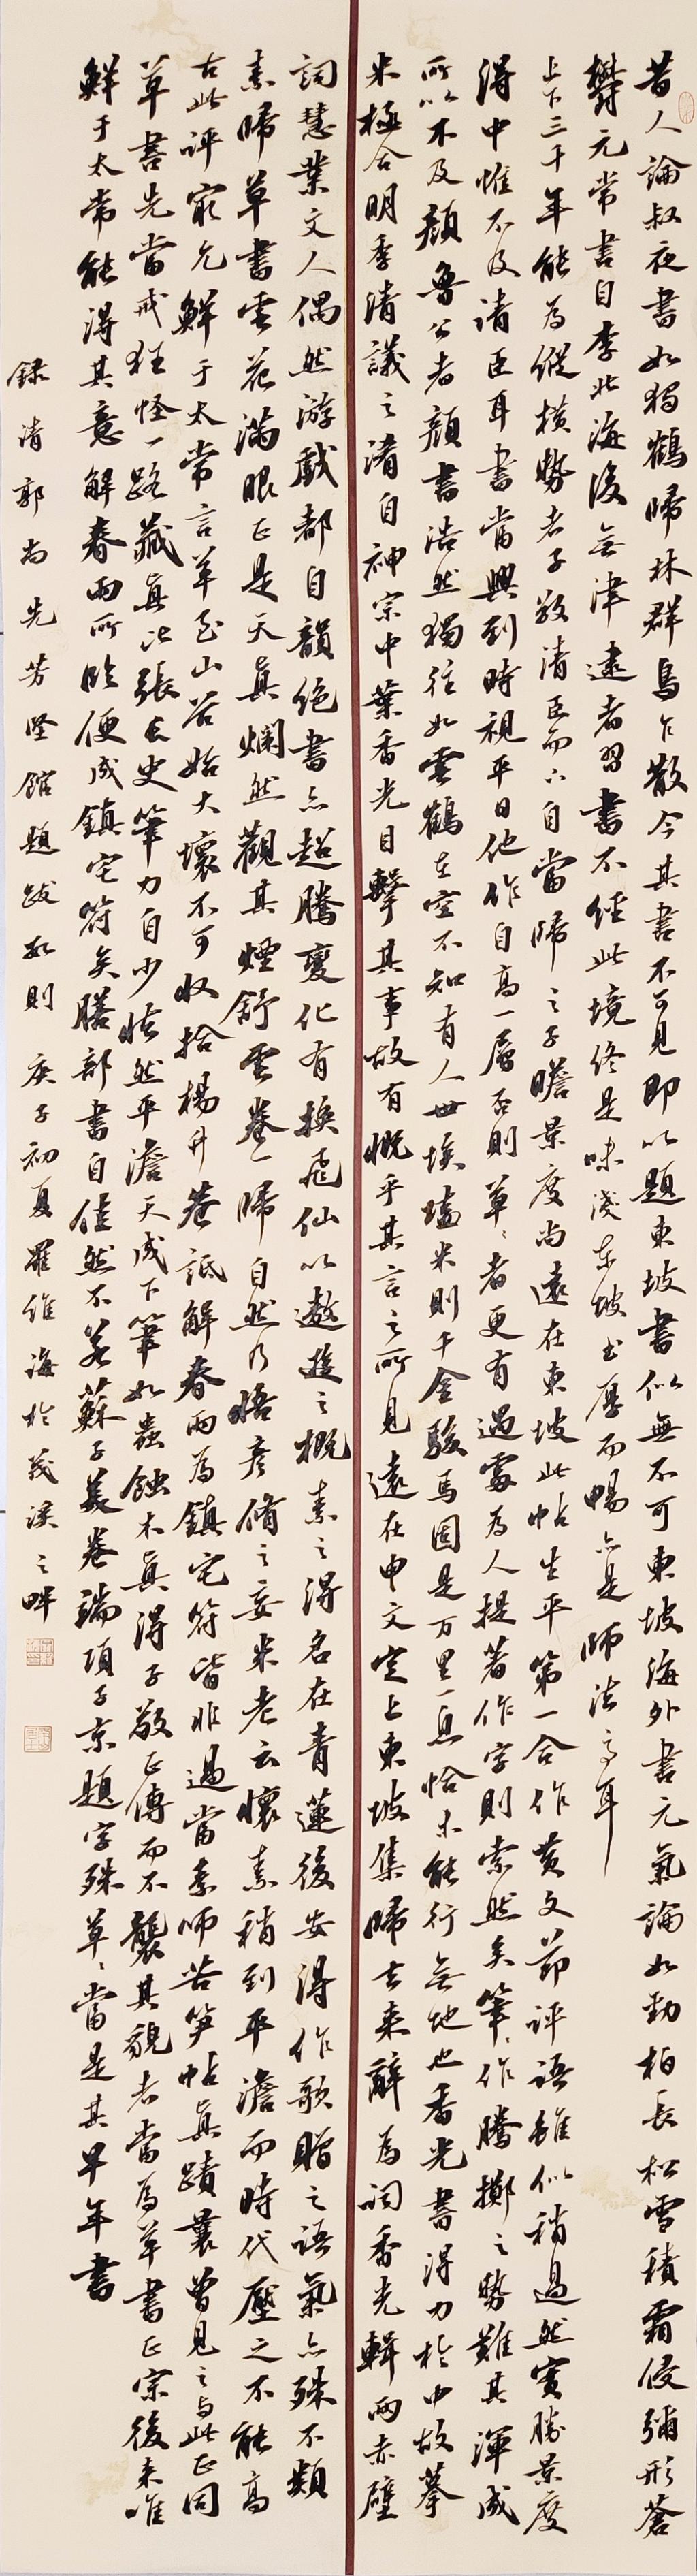 昔人論叔夜書如獨鶴歸林群鳥乍散今其書不可見即以題東坡書似無不可東坡海外書元氣論如勁柏長松雪積霜侵彌形蒼
鬱元常書目李北海後無津逮者習書不經此境終是味淺東坡書厚而暢亦是師法之耳
上下三千年能為縱橫勢者子敬清臣而下自當歸之子瞻景度尚遠在東坡此帖生平第一合作黃文節評語雖似稍過然實勝景度
得中惟不及清臣耳書當興到時視平日他作自高一層否則草草者更有過處為人提著作字則索然矣筆筆作騰擲之勢難其渾成
所以不及顏魯公者顏書浩然獨往如雲鶴在空不知有人世埃壒米則千金駿馬固是万里一息恰未能行無地也香光書得力於中故摹
米極合明季清議之淆自神宗中葉香光目擊其事故有慨乎其言之所見遠在申文定上東坡集歸去來辭為詞香光輯兩赤壁
詞慧業文人偶然游戲都自韻絕書亦超騰變化有挾飛仙以遨遊之概素之得名在青蓮後安得作歌贈之語氣亦殊不類
素師草書雲花滿眼正是天真爛然觀其煙舒雲卷一歸自然乃悟彥脩之妄米老云懷素稍到平澹而時代壓之不能高
古此評最允鮮于太常言草至山谷始大壞不可收拾楊升菴詆解春雨為鎮宅符皆非過當素師苦笋帖真蹟曩曾見之与此正同
草書先當戒狂怪一路藏真比張長史筆力自少怯然平澹天成下筆如蟲蝕木真得子敬正傳而不襲其貌者當為草書正宗後來唯
鮮于太常能得其意解春雨所臨便成鎮宅符矣膳部書自佳然不若蘇子美卷端項子京題字殊草草當是其早年書
錄清郭尚先芳堅館題跋數則 庚子初夏羅維海於茂溪之畔